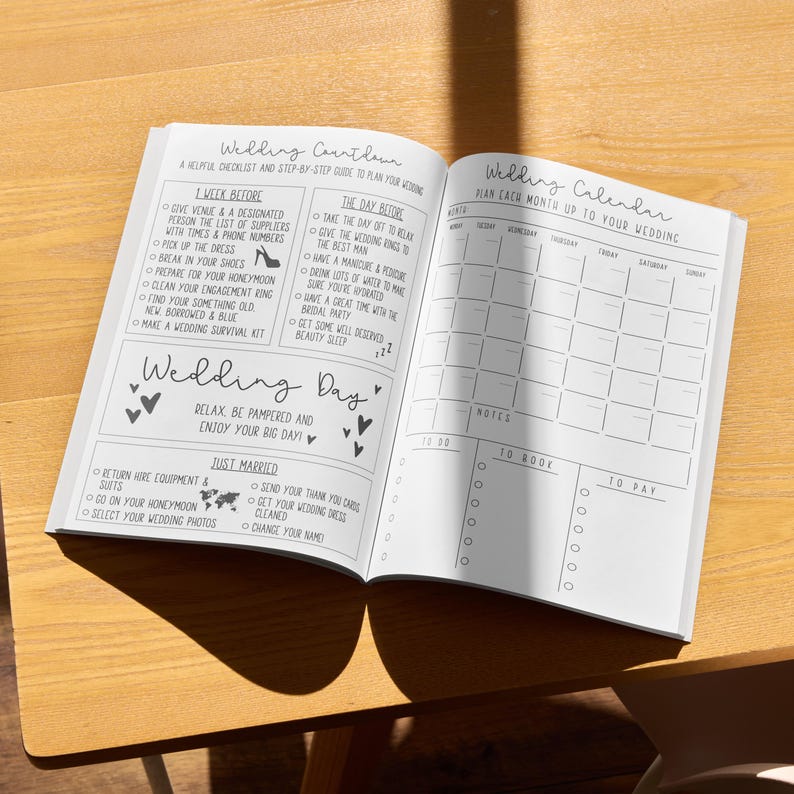 Wedding Countdown
A HELPFUL CHECKLIST AND STEP-BY-STEP GUIDE TO PLAN YOUR WEDDING
1 WEEK BEFORE
GIVE VENUE & A DESIGNATED
PERSON THE LIST OF SUPPLIERS
WITH TIMES & PHONE NUMBERS
PICK UP THE DRESS
BREAK IN YOUR SHOES
PREPARE FOR YOUR HONEYMOON
CLEAN YOUR ENGAGEMENT RING
FIND YOUR SOMETHING OLD,
NEW, BORROWED & BLUE
MAKE A WEDDING SURVIVAL KIT
THE DAY BEFORE
TAKE THE DAY OFF TO RELAX
GIVE THE WEDDING RINGS TO
THE BEST MAN
HAVE A MANICURE & PEDICURE
DRINK LOTS OF WATER TO MAKE
SURE YOU'RE HYDRATED
HAVE A GREAT TIME WITH THE
BRIDAL PARTY
GET SOME WELL DESERVED
BEAUTY SLEEP
z z Z
Wedding Day
RELAX, BE PAMPERED AND
ENJOY YOUR BIG DAY!
JUST MARRIED
RETURN HIRE EQUIPMENT &
SUITS
GO ON YOUR HONEYMOON
SELECT YOUR WEDDING PHOTOS
SEND YOUR THANK YOU CARDS
GET YOUR WEDDING DRESS
CLEANED
CHANGE YOUR NAME!
Wedding Calendar
PLAN EACH MONTH UP TO YOUR WEDDING
MONTH:
MONDAY TUESDAY WEDNESDAY THURSDAY FRIDAY SATURDAY SUNDAY
NOTES
TO DO TO BOOK TO PAY